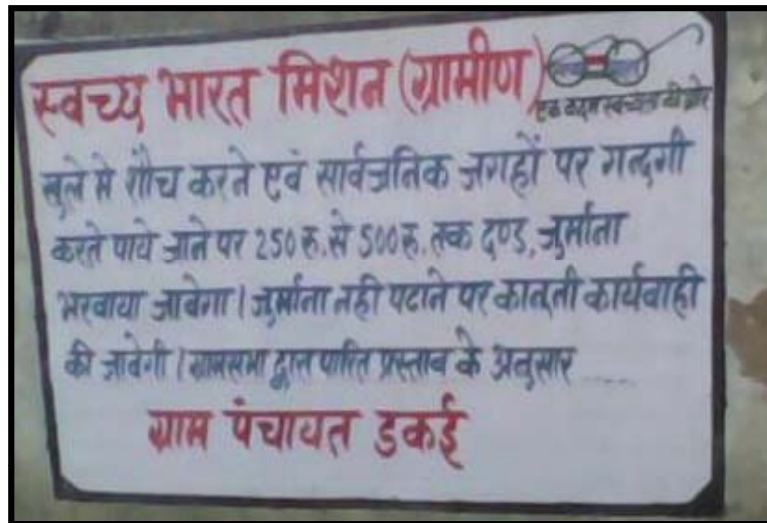 स्वच्छ भारत मिशन (ग्रामीण)
एक कदम स्वच्छता की ओर
खुले मे शौच करने एवं सार्वजनिक जगहों पर गन्दगी
करते पाये जाने पर 250 रु. से 500 रु. तक दण्ड, जुर्माना
भरवाया जावेगा। जुर्माना नही पटाने पर कानूनी कार्यवाही
की जावेगी। ग्रामसभा द्वारा पारित प्रस्ताव के अनुसार .....
ग्राम पंचायत डकई